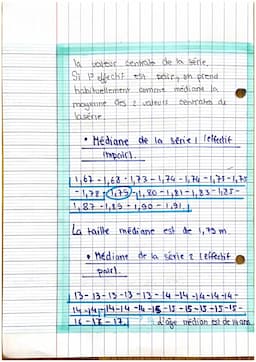 la valeur centrale de la série.
Si l'effectif est pair, on prend
habituellement comme médiane la
moyenne des 2 valeurs centrales de
la série.
• Médiane de la série 1 (effectif
impair).
1,67 - 1,68 - 1,73 - 1,74 - 1,74 - 1,75 - 1,75
- 1,78 - 1,79 - 1,80 - 1,81 - 1,83 - 1,85 -
1,87 - 1,89 - 1,90 - 1,91
La taille médiane est de 1,79 m.
• Médiane de la série 2 (effectif
pair).
13 - 13 - 13 - 13 - 13 - 14 - 14 - 14 - 14 -
14 - 14 - 14 - 14 - 14 - 15 - 15 - 15 - 15 - 15 - 15 -
16 - 17 - 17. L'âge médian est de 14 ans